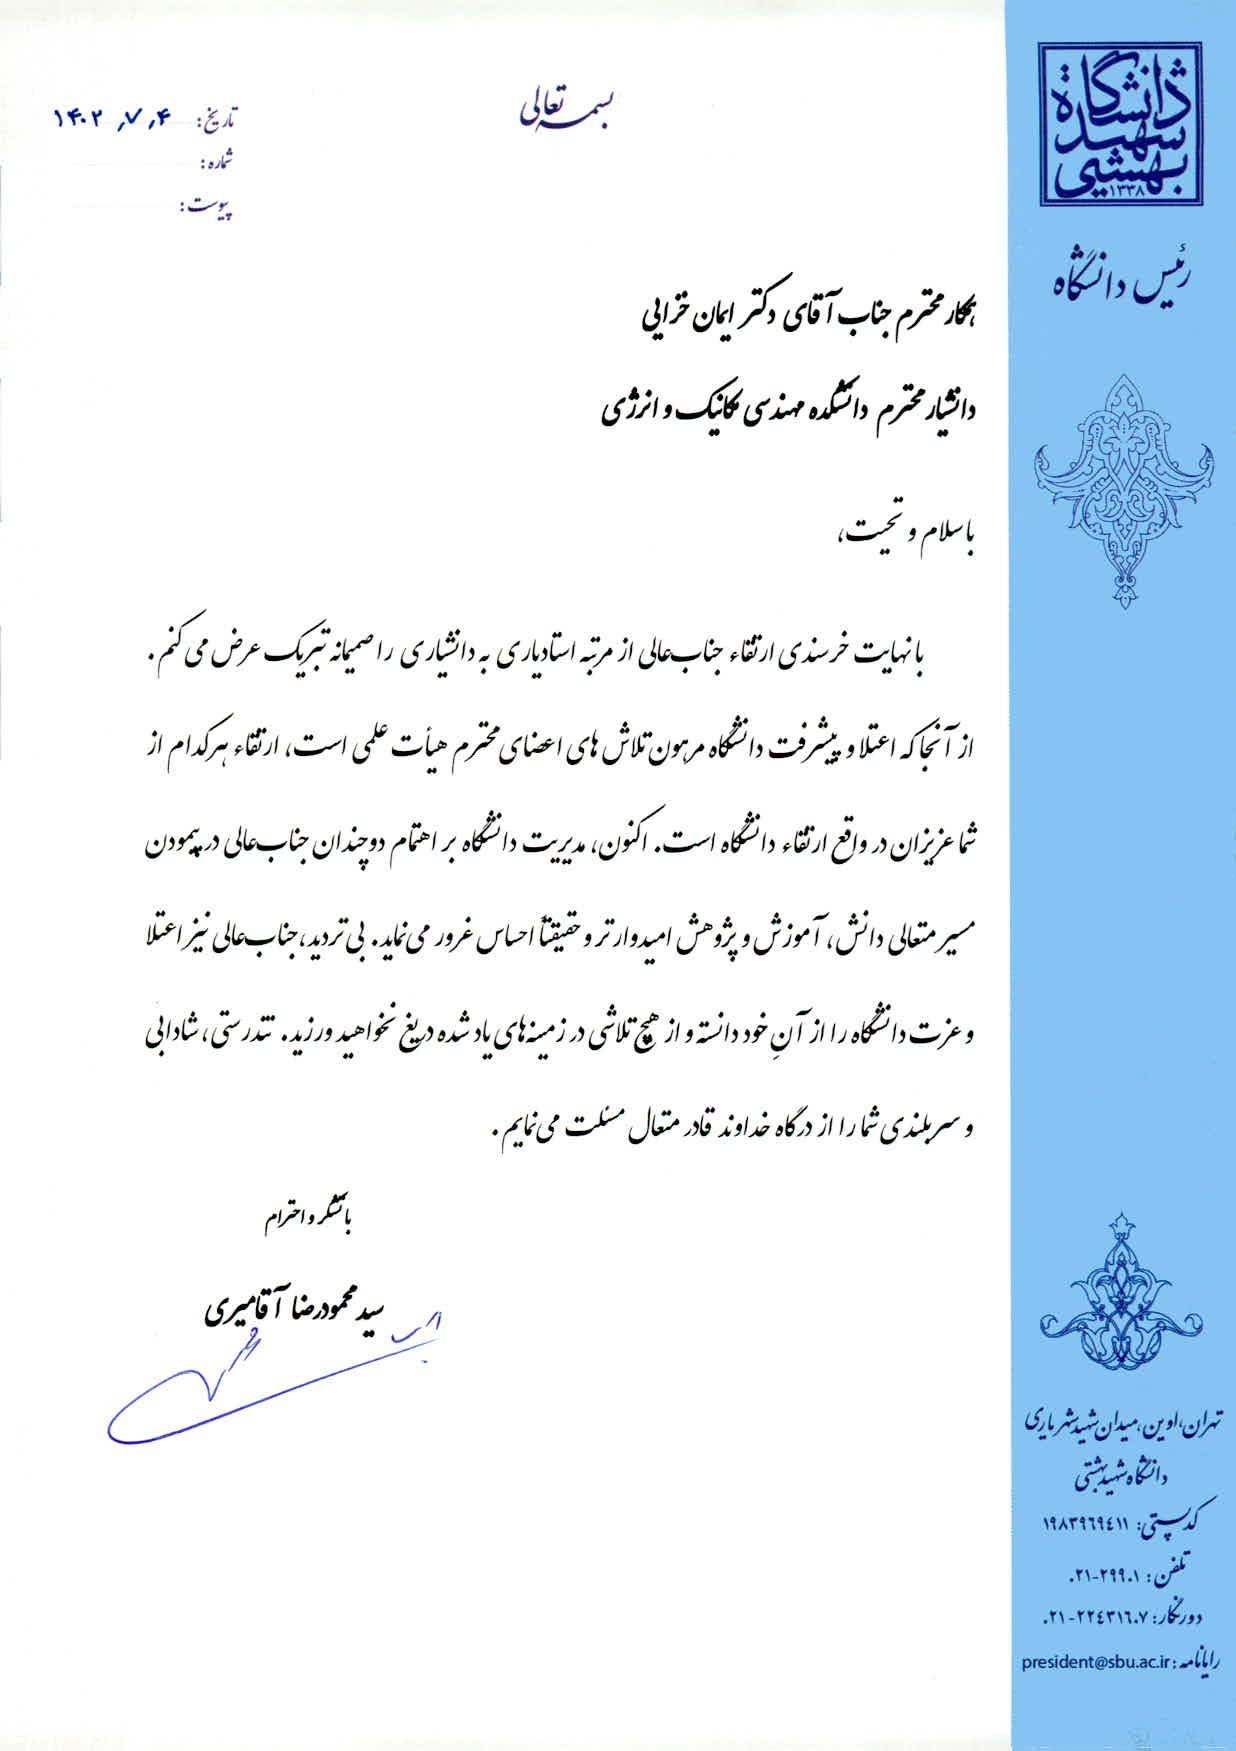 بسمه تعالی
تاریخ: ۱۴۰۲,۷,۴
شماره:
پیوست:
دانشگاه شهید بهشتی
۱۳۳۸
رئیس دانشگاه
همکار محترم جناب آقای دکتر ایمان خزایی
دانشیار محترم دانشکده مهندسی مکانیک و انرژی
با سلام و تحیت،
با نهایت خرسندی ارتقاء جناب‌عالی از مرتبه استادیاری به دانشیاری را صمیمانه تبریک عرض می کنم.
از آنجا که اعتلا و پیشرفت دانشگاه مرهون تلاش های اعضای محترم هیأت علمی است، ارتقاء هرکدام از
شما عزیزان در واقع ارتقاء دانشگاه است. اکنون، مدیریت دانشگاه بر اهتمام دوچندان جناب‌عالی در پیمودن
مسیر متعالی دانش، آموزش و پژوهش امیدوارتر و حقیقتاً احساس غرور می‌نماید. بی تردید، جناب‌عالی نیز اعتلا
و عزت دانشگاه را از آنِ خود دانسته و از هیچ تلاشی در زمینه‌های یاد شده دریغ نخواهید ورزید. تندرستی، شادابی
و سربلندی شما را از درگاه خداوند قادر متعال مسئلت می‌نمایم.
با تشکر و احترام
سید محمودرضا آقامیری
تهران، اوین، میدان شهید شهریاری
دانشگاه شهید بهشتی
کد پستی: ۱۹۸۳۹۶۹٤۱۱
تلفن: ۰۲۱-۲۹۹۰۱
دورنگار: ۰۲۱-۲۲٤۳۱٦۰۷
رایانامه: president@sbu.ac.ir